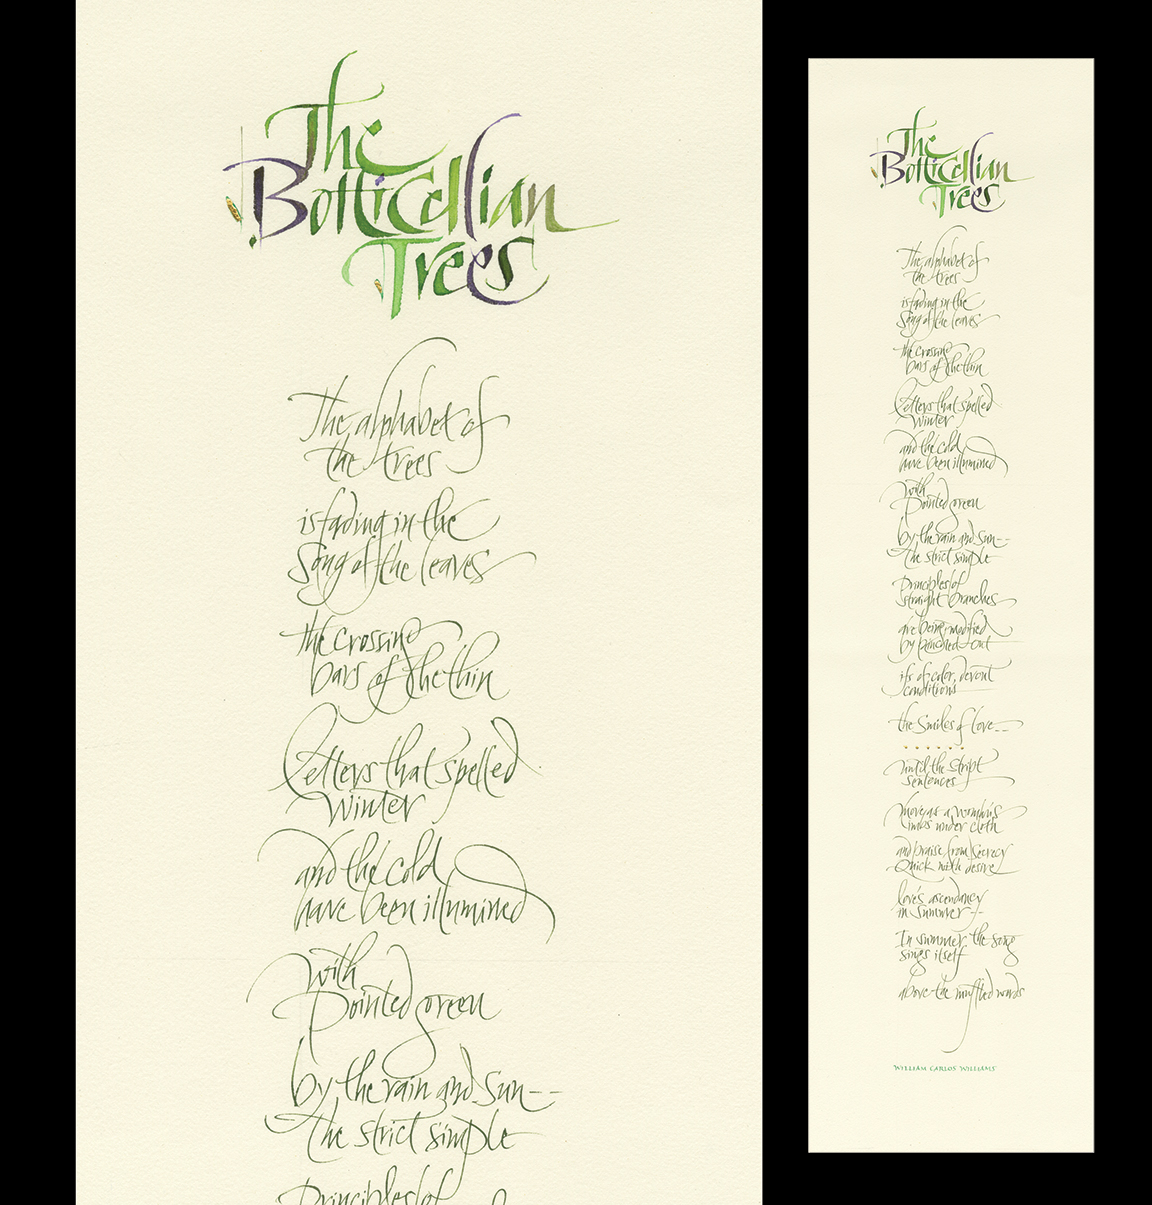 The
Botticellian
Trees
The alphabet of
the trees
is fading in the
Song of the leaves
the crossing
bars of the thin
letters that spelled
Winter
and the cold
have been illumined
with
pointed green
by the rain and sun--
the strict simple
Principles of
The
Botticellian
Trees
The alphabet of
the trees
is fading in the
Song of the leaves
the crossing
bars of the thin
letters that spelled
Winter
and the cold
have been illumined
with
pointed green
by the rain and sun--
the strict simple
Principles of
straight branches
are being modified
by pinched-out
ifs of color, devout
conditions
the smiles of love--
......
until the stript
sentences
move as a woman's
limbs under cloth
and praise from secrecy
Quick with desire
love's ascendancy
in summer--
In summer the song
sings itself
above the muffled words
WILLIAM CARLOS WILLIAMS